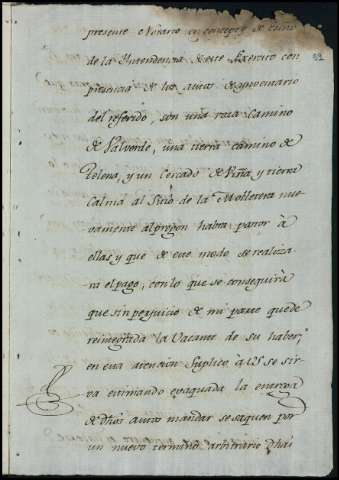 presente Notario en concepto de
de la Yntendencia de este Exercito con
presencia de los autos
del referido, son una raza Camino
de Valverde, una tierra camino de
Telena, y un Cercado de Viña, y tierra
Calma al Sitio de la nue-
vamente al pregon habra postor à
ellas, y que de este modo se realiza-
rà el pago, con lo que se conseguirà
que sin perjuicio de mi parte quede
reintegrada la Vacante de su haber;
en esta atencion Suplico à VS se sir-
va estimando evaquada la entrega
de dhos autos mandar se saquen por
un nuevo termino arbitrario